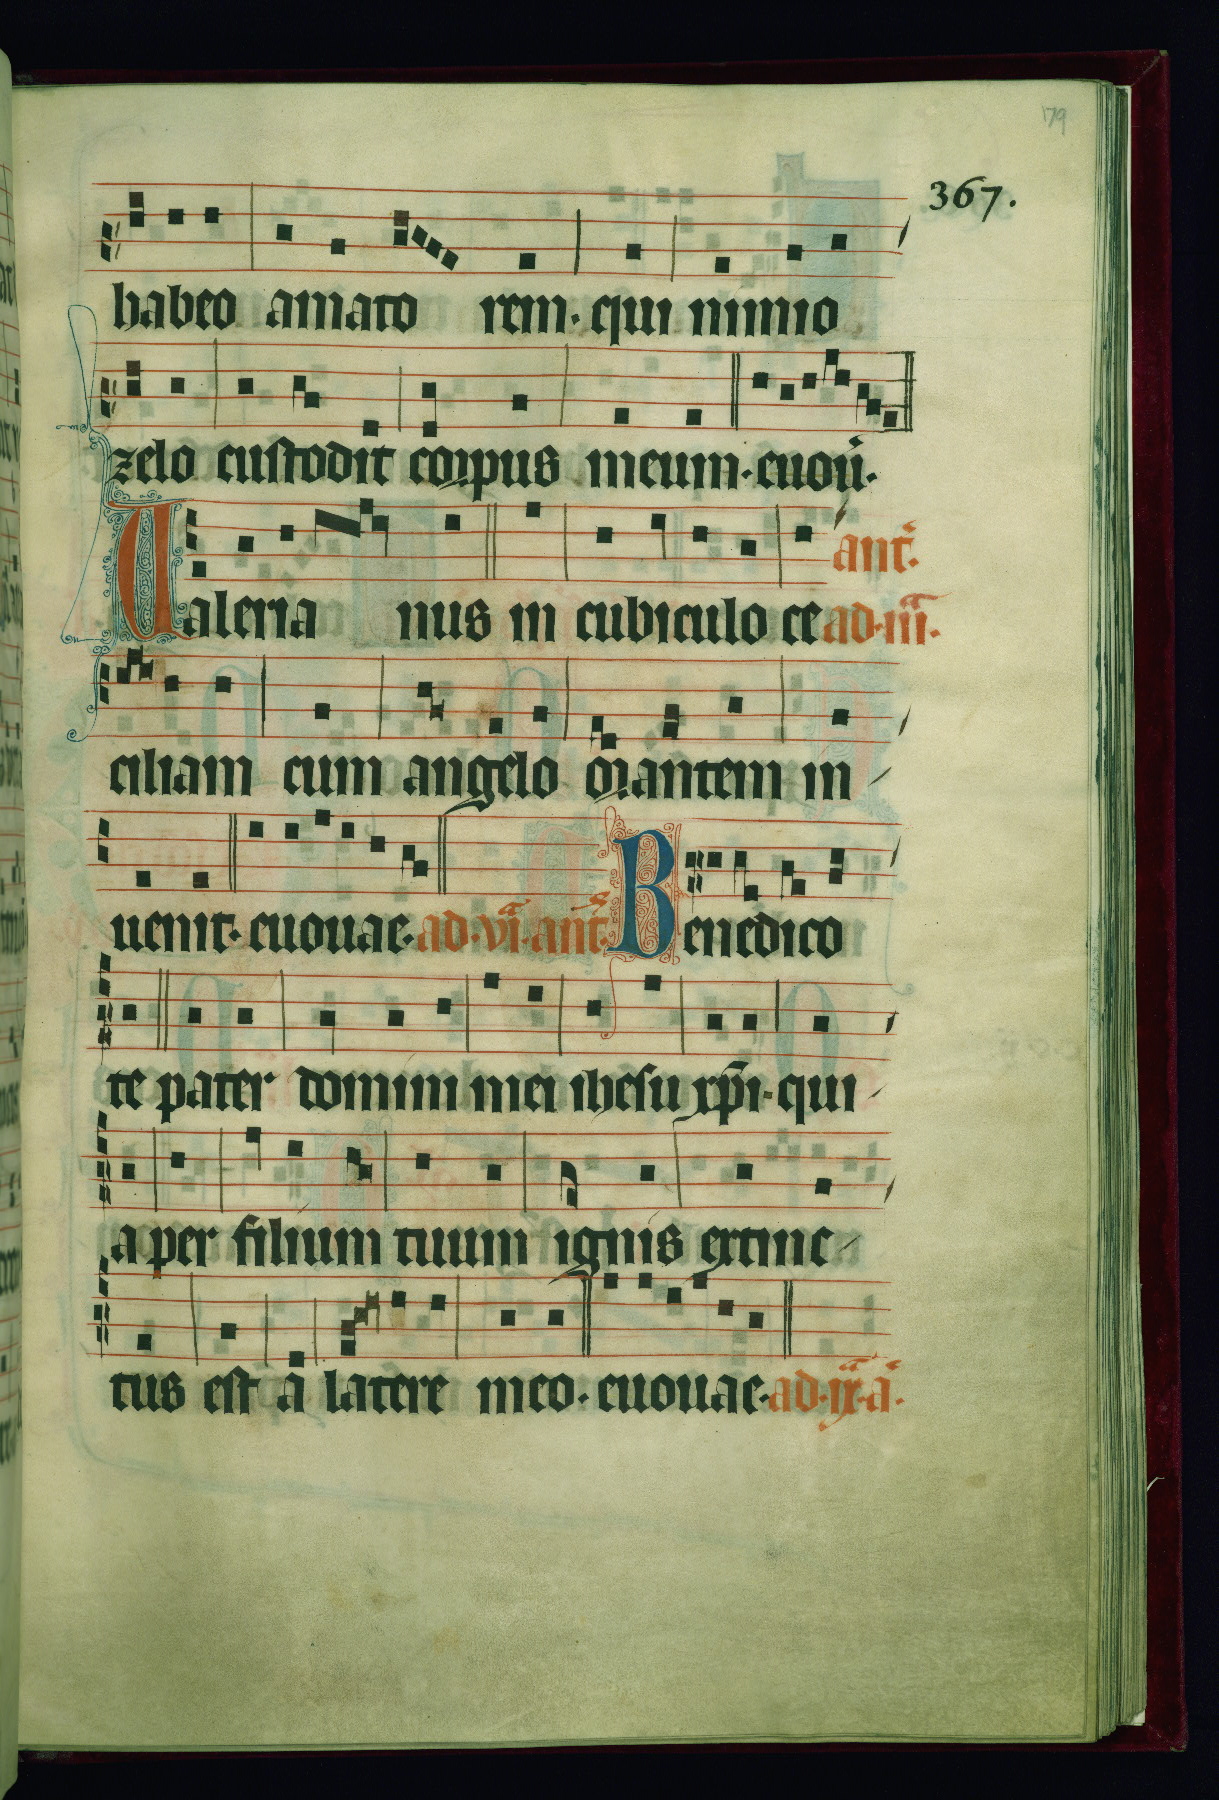 79
367.
habeo amato rem· qui nimio
zelo custodit corpus meum· euou̅·
Valeria nus in cubiculo ce ant̅· ad·iii̅·
ciliam cum angelo orantem in
uenit· euouae· ad·vi̅·ant̅· Benedico
te pater domini mei ihesu xp̅i· qui
a per filium tuum ignis extinc
tus est a latere meo· euouae· ad·ix̅·a̅·